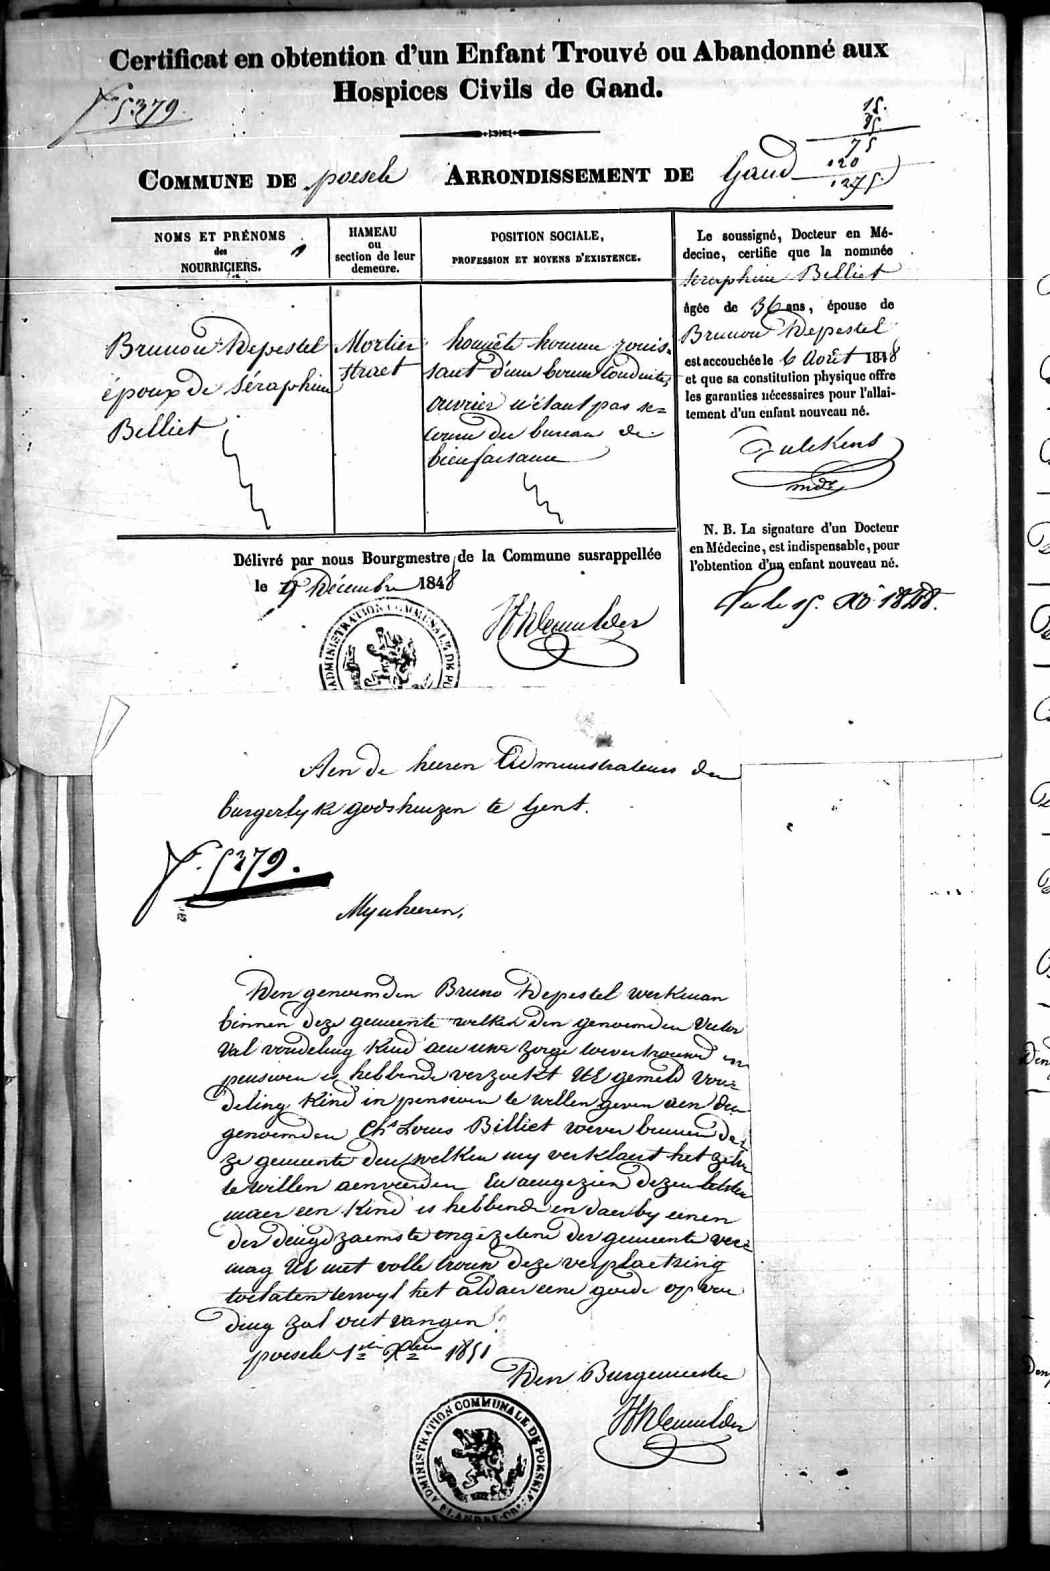 Certificat en obtention d'un Enfant Trouvé ou Abandonné aux
Hospices Civils de Gand.
5379.
15.
75
120
1275.
COMMUNE DE poesele ARRONDISSEMENT DE Gand
NOMS ET PRÉNOMS
des
NOURRICIERS.
HAMEAU
ou
section de leur
demeure.
POSITION SOCIALE,
PROFESSION ET MOYENS D'EXISTENCE.
Brunou Depestel
époux de Séraphine
Billiet
Mortier
straet
honnête homme jouis-
sant d'une bonne Conduite,
ouvrier n'étant pas se-
couru du bureau de
bienfaisance
Le soussigné, Docteur en Mé-
decine, certifie que la nommée
Seraphine Billiet
âgée de 36 ans, épouse de
Brunou Depestel
est accouchée le 6 Août 1848
et que sa constitution physique offre
les garanties nécessaires pour l'allai-
tement d'un enfant nouveau né.
N. B. La signature d'un Docteur
en Médecine, est indispensable, pour
l'obtention d'un enfant nouveau né.
15. Xb 1848.
Délivré par nous Bourgmestre de la Commune susrappellée
le Décembre 1848
ADMINISTRATION COMMUNALE DE
Aen de heeren Administrateurs der
burgerlyke godshuizen te Gent.
5379.
Mynheeren,
Den genoemden Bruno Depestel werkman
binnen deze gemeente welken den genoemden Victor
Val vondeling kind aen uwe zorge toevertrouwd in
pensioen is hebbende verzoekt UE gemeld von-
deling kind in pensioen te willen geven aen den
genoemden Chs Louis Billiet wever binnen de-
ze gemeente den welken my verklaert het zelve
te willen aenveerden En aengezien dezen letsten
maer een kind is hebbende en daerby eenen
der deugdzaemste ingezetene der gemeente ver-
mag UE met volle trouw deze verplaetsing
toelaten terwyl het aldaer eene goede opvoe
ding zal ontvangen.
poesele 1 Xber 1851
Den Burgemeester
ADMINISTRATION COMMUNALE DE POESELE
FLANDRE-ORle